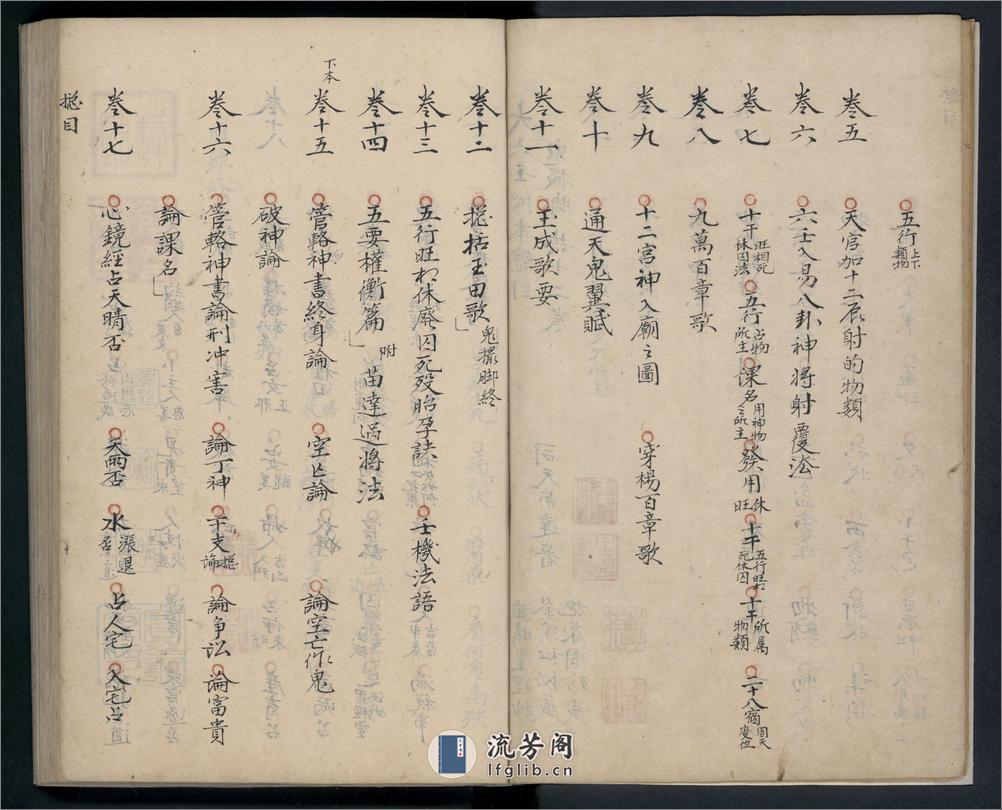 五行上下類物
卷五 天官加十二辰射的物類
卷六 六壬入易八卦神將射覆法
卷七 十干旺相死休囚法 五行占物所主 課名用神物之所主 發用休旺 十干五行旺相死休囚 十干所属物類 二十八宿周天度位
卷八 九萬百章歌
卷九 十二宮神入廟之圖 穿楊百章歌
卷十 通天鬼翼賦
卷十一 玉成歌要
卷十二 捴括玉田歌 鬼撮脚終
卷十三 五行旺相休廃囚死殁胎孕訣 壬機法語
卷十四 五要權衡篇 附 苗達過將法
下本
卷十五 管輅神書終身論 空亡論 論空亡作鬼
破神論
卷十六 管輅神書論刑冲害 論丁神 干支捴論 論争訟 論富貴
論課名
卷十七 心鏡經占天晴否 天雨否 水漲退否 占人宅 入宅占
捴目
流芳阁
lfglib.cn